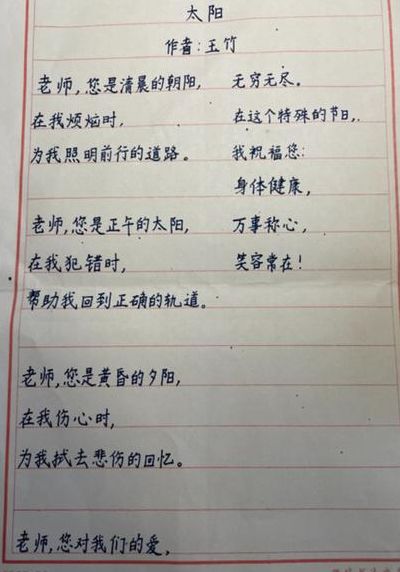 太阳
作者:王竹
老师,您是清晨的朝阳,
在我烦恼时,
为我照明前行的道路。
老师,您是正午的太阳,
在我犯错时,
帮助我回到正确的轨道。
老师,您是黄昏的夕阳,
在我伤心时,
为我拭去悲伤的回忆。
老师,您对我们的爱,
无穷无尽。
在这个特殊的节日,
我祝福您:
身体健康,
万事称心,
笑容常在!